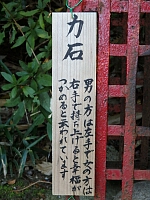 力石
男の方は左手で女の方は
右手で持ち上げると幸福が
つかめると云われています